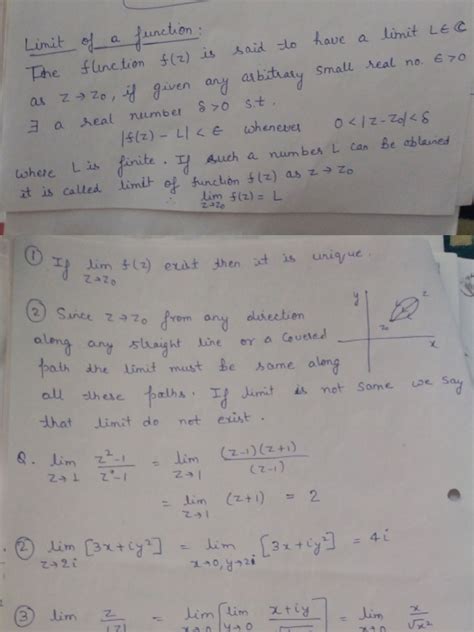 Limit of a function:
The function f(z) is said to have a limit L∈ℂ
as z→z₀, if given any arbitrary small real no. ∈>0
∃ a real number δ>0 s.t.
|f(z) - L| < ∈ whenever 0<|z-z₀|<δ
where L is finite. If such a number L can be obtained
it is called limit of function f(z) as z→z₀
∴ lim z→z₀ f(z) = L
① If lim z→z₀ f(z) exist then it is unique.
② Since z→z₀ from any direction
along any straight line or a Covered
path the limit must be same along
all these paths. If limit is not same we say
that limit do not exist.
y
z
z₀
x
Q. lim z→1 z²-1 / z-1 = lim z→1 (z-1)(z+1) / (z-1)
= lim z→1 (z+1) = 2
② lim z→2i [3x+iy²] = lim x→0, y→2 [3x+iy²] = 4i
③ lim z / |z| = lim x→0 [lim y→0 x+iy / ] = lim x / √x²